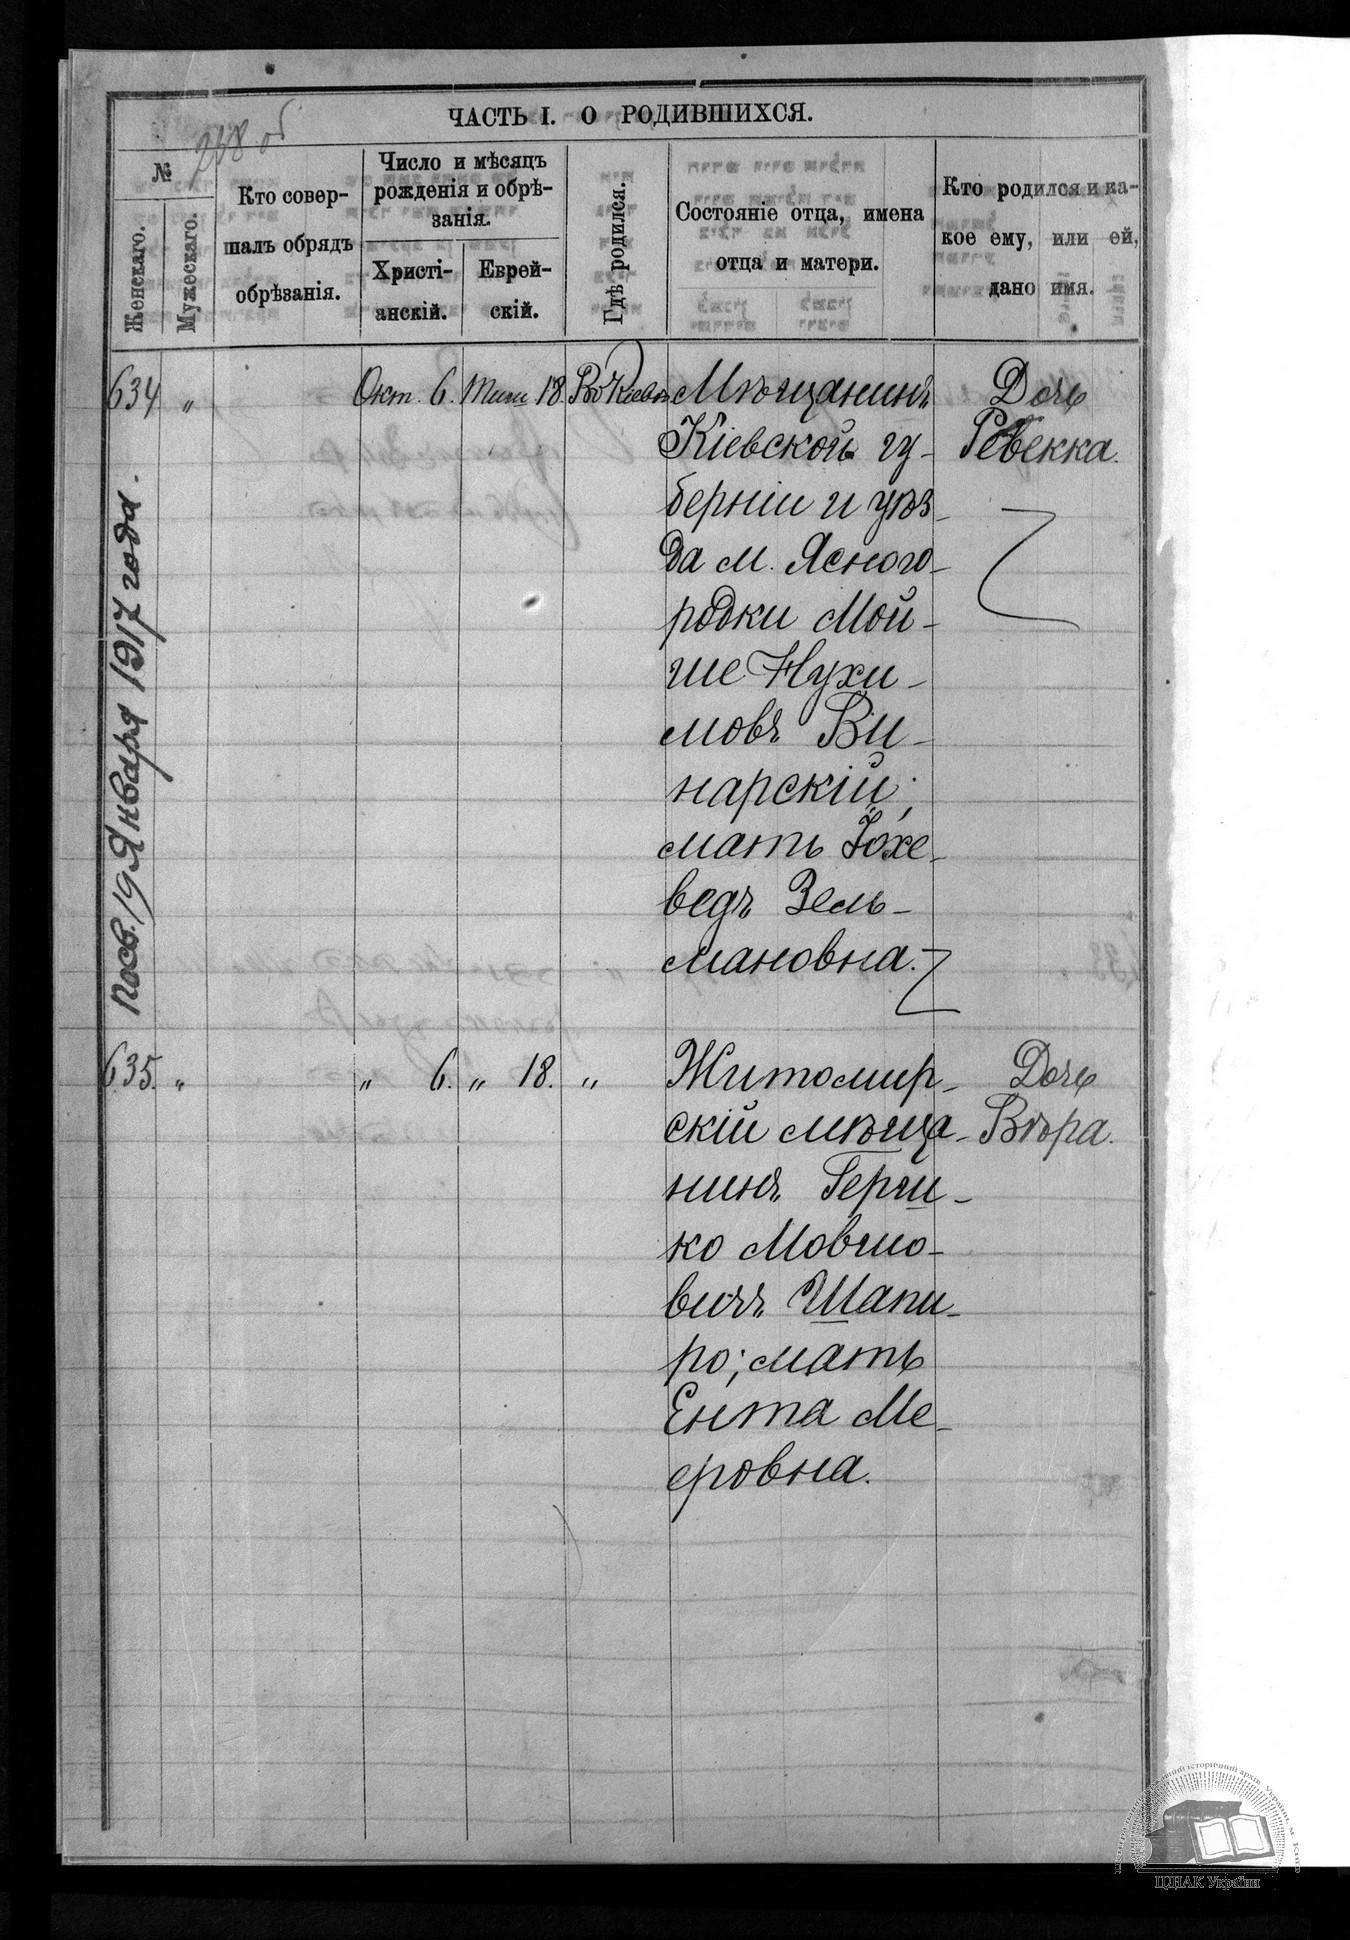 238 об
ЧАСТЬ I. О РОДИВШИХСЯ.
№
Женскаго.
Мужескаго.
Кто совер-
шалъ обрядъ
обрѣзанія.
Число и мѣсяцъ
рожденія и обрѣ-
занія.
Христі-
анскій.
Еврей-
скій.
Гдѣ родился.
Состояніе отца, имена
отца и матери.
Кто родился и ка-
кое ему, или ей,
дано имя.
634 „ Окт. 6. Тиш 18. Въ Кіевѣ
Мѣщанинъ
Кіевской гу-
берніи и уѣз-
да м. Ясного-
родки Мой-
ше Нухи-
мовъ Ви-
нарскій;
мать Іохе-
ведъ Зель-
мановна.
Дочь
Ревекка.
Посв. 19 Января 1917 года.
635. „ „ 6. „ 18. „
Житомир-
скій мѣща-
нинъ Герш-
ко Мовшо-
вичъ Шапи-
ро; мать
Ента Ме-
ровна.
Дочь
Вѣра.
ЦДІАК України